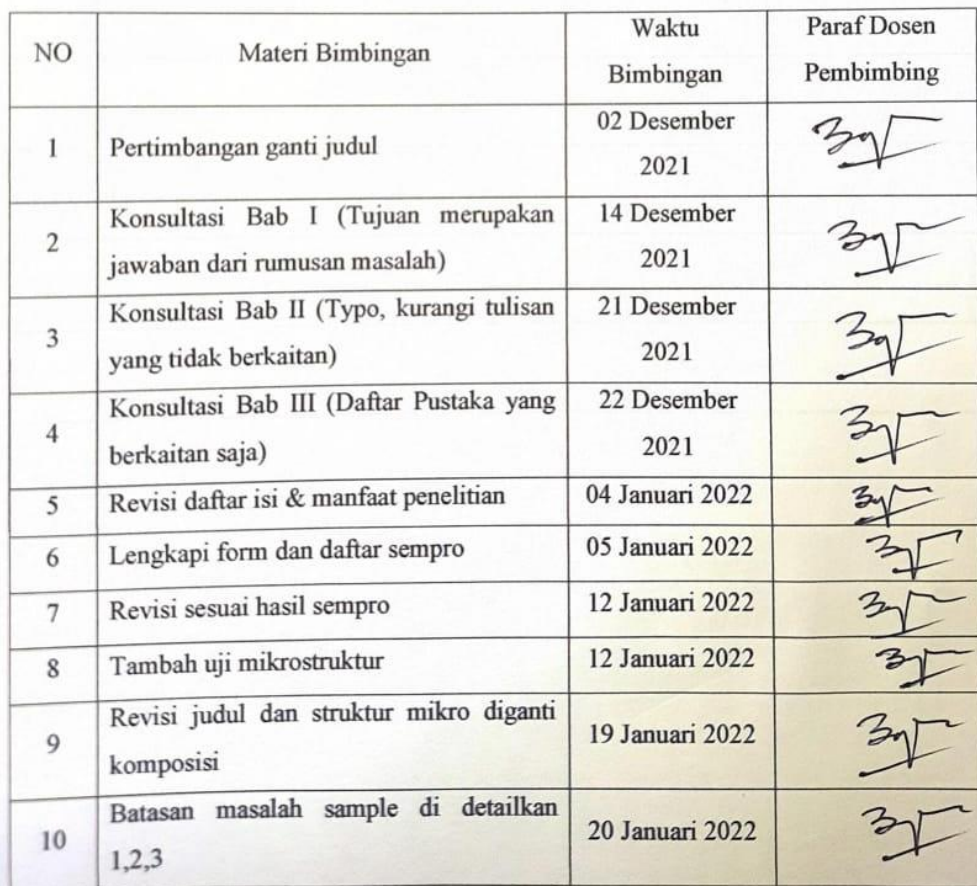 NO
Materi Bimbingan
Waktu
Bimbingan
Paraf Dosen
Pembimbing
1
Pertimbangan ganti judul
02 Desember
2021
2
Konsultasi Bab I (Tujuan merupakan
jawaban dari rumusan masalah)
14 Desember
2021
3
Konsultasi Bab II (Typo, kurangi tulisan
yang tidak berkaitan)
21 Desember
2021
4
Konsultasi Bab III (Daftar Pustaka yang
berkaitan saja)
22 Desember
2021
5
Revisi daftar isi & manfaat penelitian
04 Januari 2022
6
Lengkapi form dan daftar sempro
05 Januari 2022
7
Revisi sesuai hasil sempro
12 Januari 2022
8
Tambah uji mikrostruktur
12 Januari 2022
9
Revisi judul dan struktur mikro diganti
komposisi
19 Januari 2022
10
Batasan masalah sample di detailkan
1,2,3
20 Januari 2022